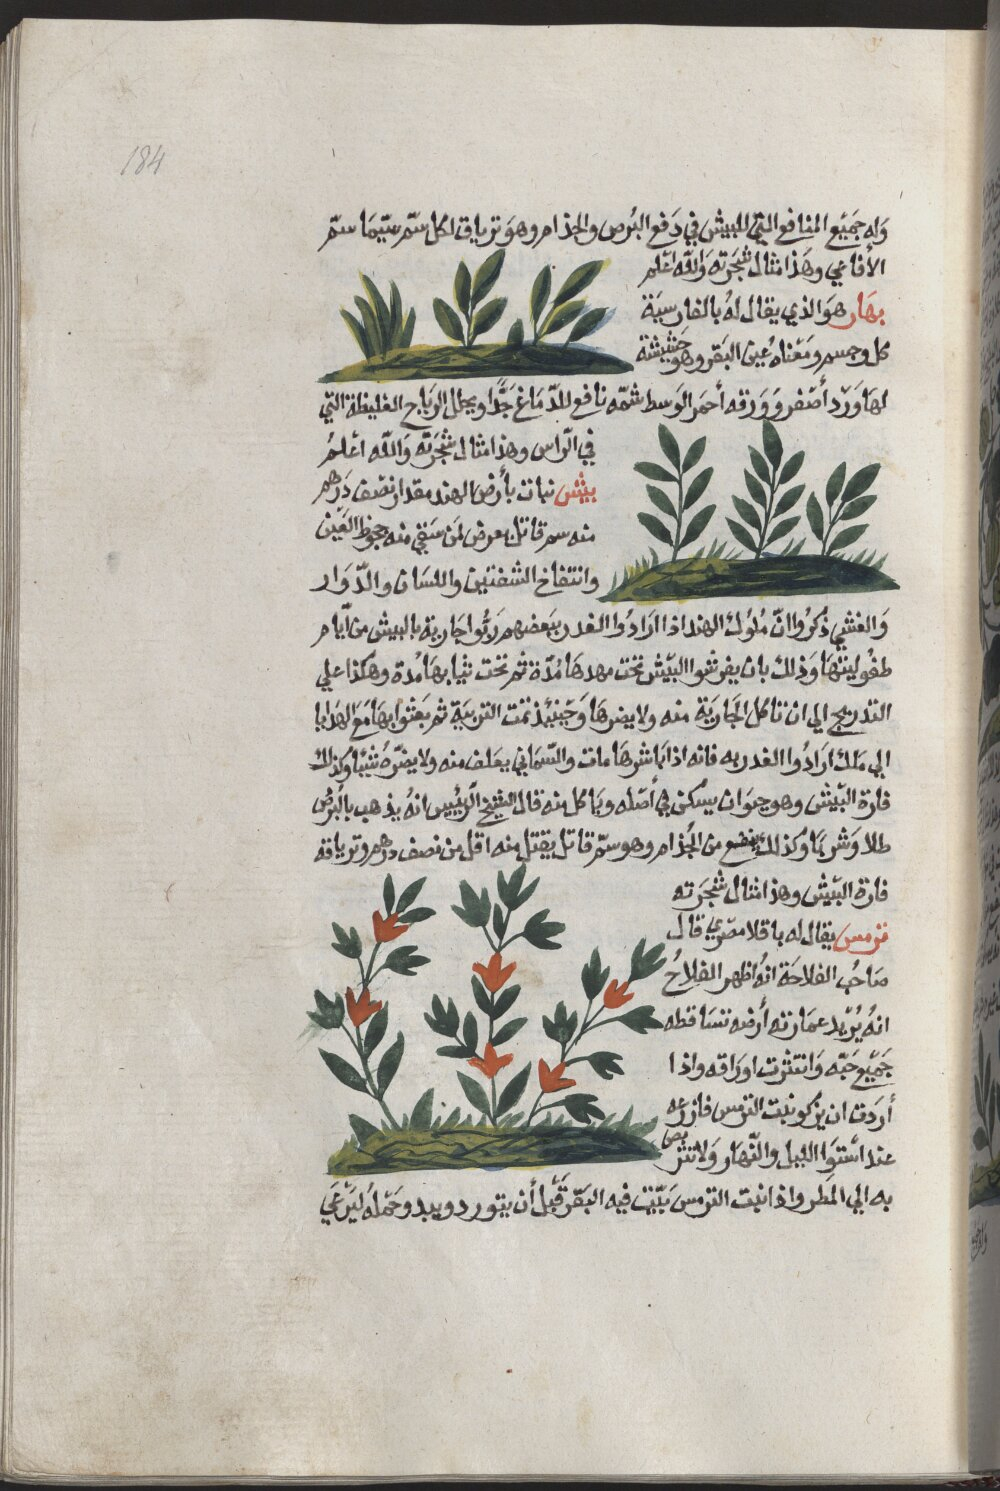 184
وله جَميع المنافع التي للبيش في دَفع البَرص والجذام وهوَ ترياق لكل سّم سيّمَا سمّ
الأفاعي وهَذا مثال شجَرته وَالله اعْلم
بهَار هوَ الذي يقال لهُ بالفارسيَة
كل وجمسم ومَعْناه عين البَقر وهو حَشيشة
لهَا وَرد أصْفر وَوَرقه أحمَر الوَسط شمّه نافع للدّمَاغ جَدًّا ويحلل الرَياح الغليظة التي
في الرّاس وهذا مثال شجَرَته وَالله اعْلمُ
بيْش نبات بأرض الهند مقدار نصْف دَرهم
منه سم قاتل يعرض لمن سقي منه جحوظ العَين
وانتفاخ الشفتين واللسان والدّوَار
وَالغشي ذكرُوا انّ مُلوك الهند اذا ارَادُوا الغدر ببَعضهم رَبُّوا جَارية بالبيش من ايّام
طفوُليتهَا وَذلك بان يفرشوا البيْش تحت مهدهَا مُدّة ثم تحت ثيابهَا مُدة وهَكذا علي
التدريج الي ان تاكل الجَاريَة منه ولا يضرهَا وَحينئذ تمت التربيَة ثم بعَثوا بهَا مَع الهدَايا
الي مَلك ارَادُوا الغدر به فانه اذا بَاشرهَا مات والسّمَاني يعَلف منه ولا يضّرهُ شيْا وَكذلك
فارة البيْش وهو حيَوان يسكن في أصْله ويَاكل منه قال الشيخ الرّئيس انهُ يذهب بالبَرص
طلاء وَشربَا وكذلك ينفع من الجُذام وهو سمّ قاتل يقتل منه اقل من نصف درهم وترياقه
فارة البيْش وهذا مثال شجَرَته
ترمس يقال له باقلا مصْري قال
صَاحب الفلاحَة انهُ اظهر الفلاحُ
انهُ يُرْيد عمَارته أرضه تسَاقطه
جَميْع حَبّه وَانتثرت اورَاقه واذا
أرَدَت ان يزكو نبت الترمس فازرَعه
عند اسْتوَا الليل والنّهَار وَلا تتربص
به الي المَطر واذا نبت الترمس بَيّت فيه البَقر قَبْل أن يتورد ويبدو حَمْله ليَرْعَي